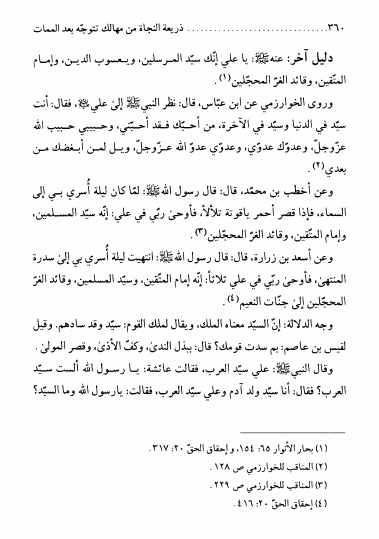 ٣٦٠ ............................... ذريعة النجاة من مهالك تتوجّه بعد الممات
دليل آخر: عنه ﷺ: يا علي إنّك سيّد المرسلين، ويعسوب الدين، وإمام
المتّقين، وقائد الغرّ المحجّلين(١).
وروى الخوارزمي عن ابن عبّاس، قال: نظر النبي ﷺ إلى علي ﷺ، فقال: أنت
سيّد في الدنيا وسيّد في الآخرة، من أحبّك فقد أحبّني، وحبيبي حبيب الله
عزّوجلّ، وعدوّك عدوّي، وعدوّي عدوّ الله عزّوجلّ، ويل لمن أبغضك من
بعدي(٢).
وعن أخطب بن محمّد، قال: قال رسول الله ﷺ: لمّا كان ليلة أُسري بي إلى
السماء، فإذا قصر أحمر ياقوتة تلألأ، فأوحى ربّي في علي: إنّه سيّد المسلمين،
وإمام المتّقين، وقائد الغرّ المحجّلين(٣).
وعن أسعد بن زرارة، قال: قال رسول الله ﷺ: انتهيت ليلة أُسري بي إلى سدرة
المنتهى، فأوحى ربّي في علي ثلاثاً: إنّه إمام المتّقين، وسيّد المسلمين، وقائد الغرّ
المحجّلين إلى جنّات النعيم(٤).
وجه الدلالة: إنّ السيّد معناه الملك، ويقال لملك القوم: سيّد وقد سادهم. وقيل
لقيس بن عاصم: بم سدت قومك؟ قال: ببذل الندى، وكفّ الأذى، وقصر المولى.
وقال النبي ﷺ: علي سيّد العرب، فقالت عائشة: يا رسول الله ألست سيّد
العرب؟ فقال: أنا سيّد ولد آدم وعلي سيّد العرب، فقالت: يارسول الله وما السيّد؟
(١) بحار الأنوار ٦٥: ١٥٤، وإحقاق الحقّ ٢٠: ٣١٧.
(٢) المناقب للخوارزمي ص ١٢٨.
(٣) المناقب للخوارزمي ص ٢٢٩.
(٤) إحقاق الحقّ ٢٠: ٤١٦.